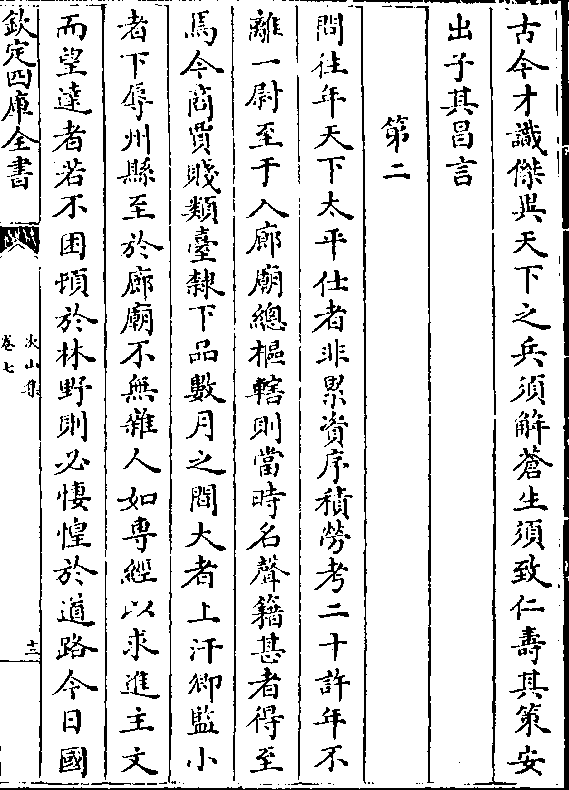 古今才識傑與天下之兵須解蒼生須致仁壽其策安
出子其昌言
第二
問往年天下太平仕者非累資序積勞考二十許年不
離一尉至于入廊廟總樞轄則當時名聲籍甚者得至
焉今商賈賤類臺隸下品數月之間大者上汗卿監小
者下辱州縣至於廊廟不無雜人如專經以求進主文
而望達者若不困頓於林野則必悽惶於道路今日國
欽定四庫全書
次山集
卷七
十三